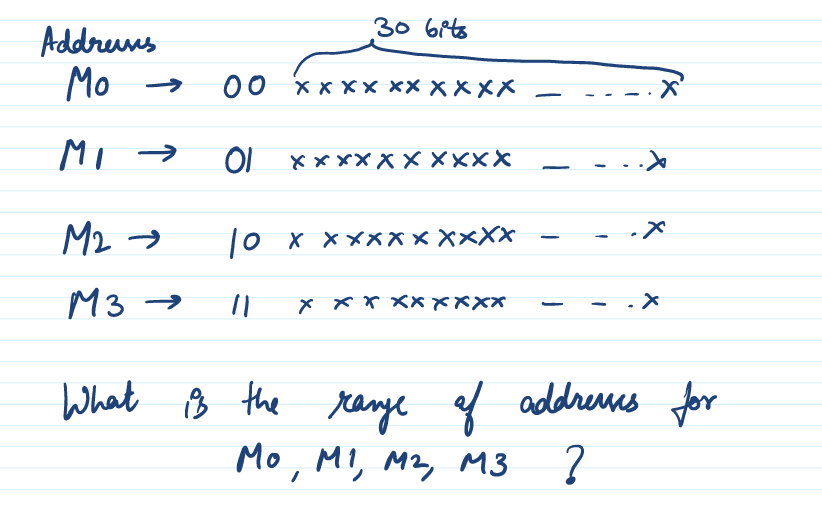 30 bits
Addresses
M0 → 00 x x x x x x x x x x _ - - - - . x
M1 → 01 x x x x x x x x x x _ - - . . x
M2 → 10 x x x x x x x x x x - - . x
M3 → 11 x x x x x x x x x x - - . x
What is the range of addresses for
M0, M1, M2, M3 ?